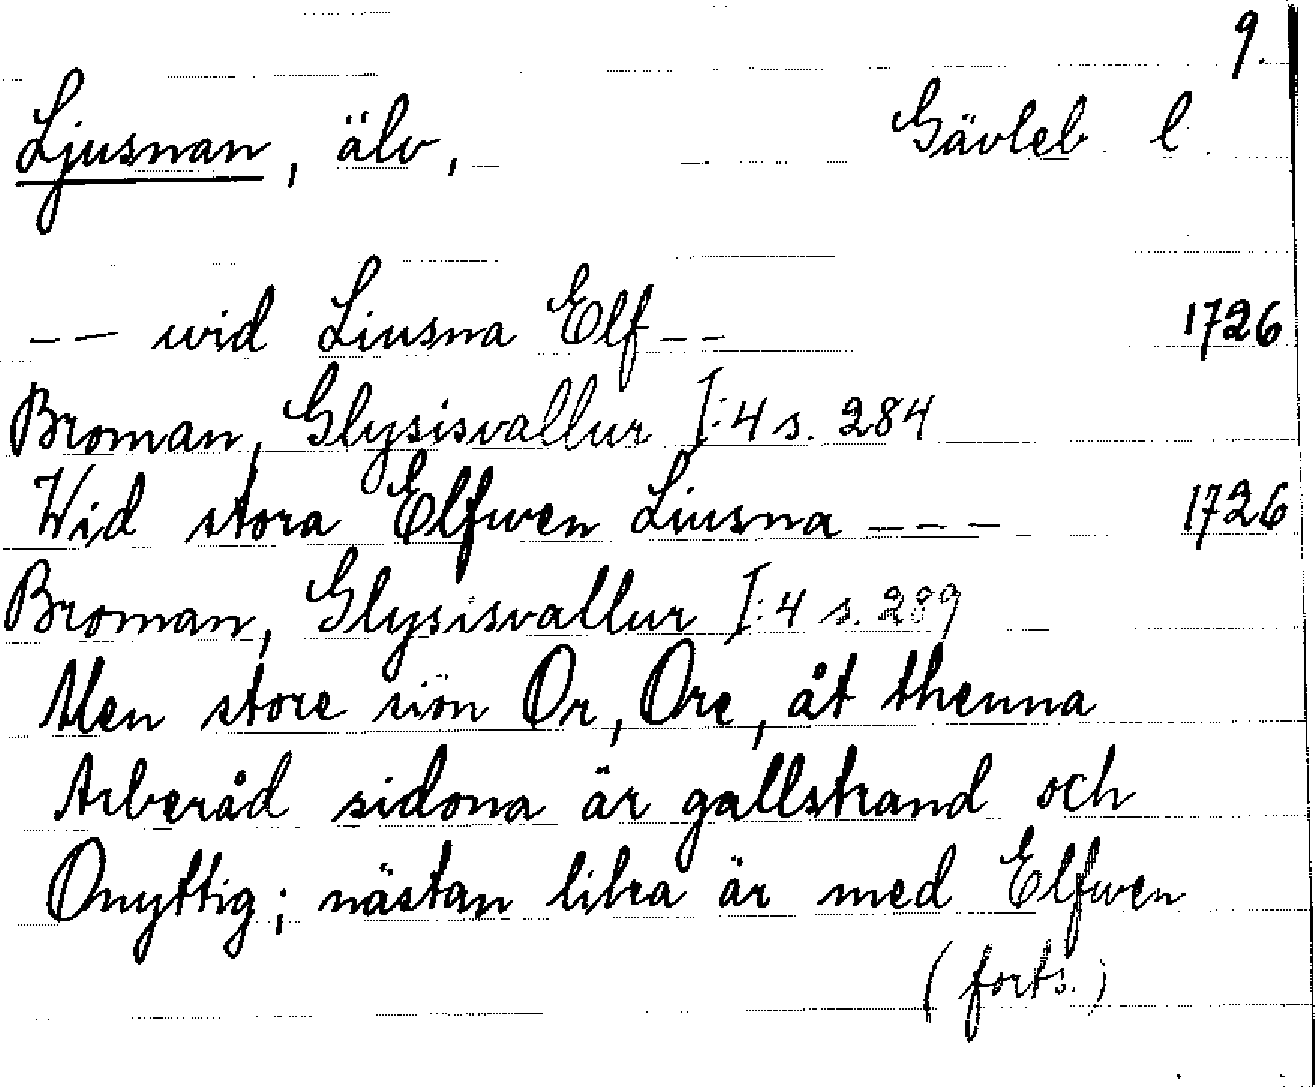 9.
Ljusnan, älv, Gävleb. l.
-- wid Liusna Elf -- 1726
Broman, Glysisvallur I:4 s. 284
Wid stora Elfwen Liusna --- 1726
Broman, Glysisvallur I:4 s. 289
Men store siön Or, Ore, åt thenna
Arberåd sidona är gallstrand och
Onyttig; nästan lika är med Elfwen
(forts.)